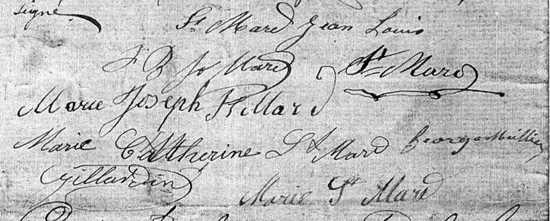 signé St Mard Jean Louis
J B St Mard St Mard
Marie Joseph Killard
Marie Catherine St Mard George Mullier
Gillardin
Marie St Mard